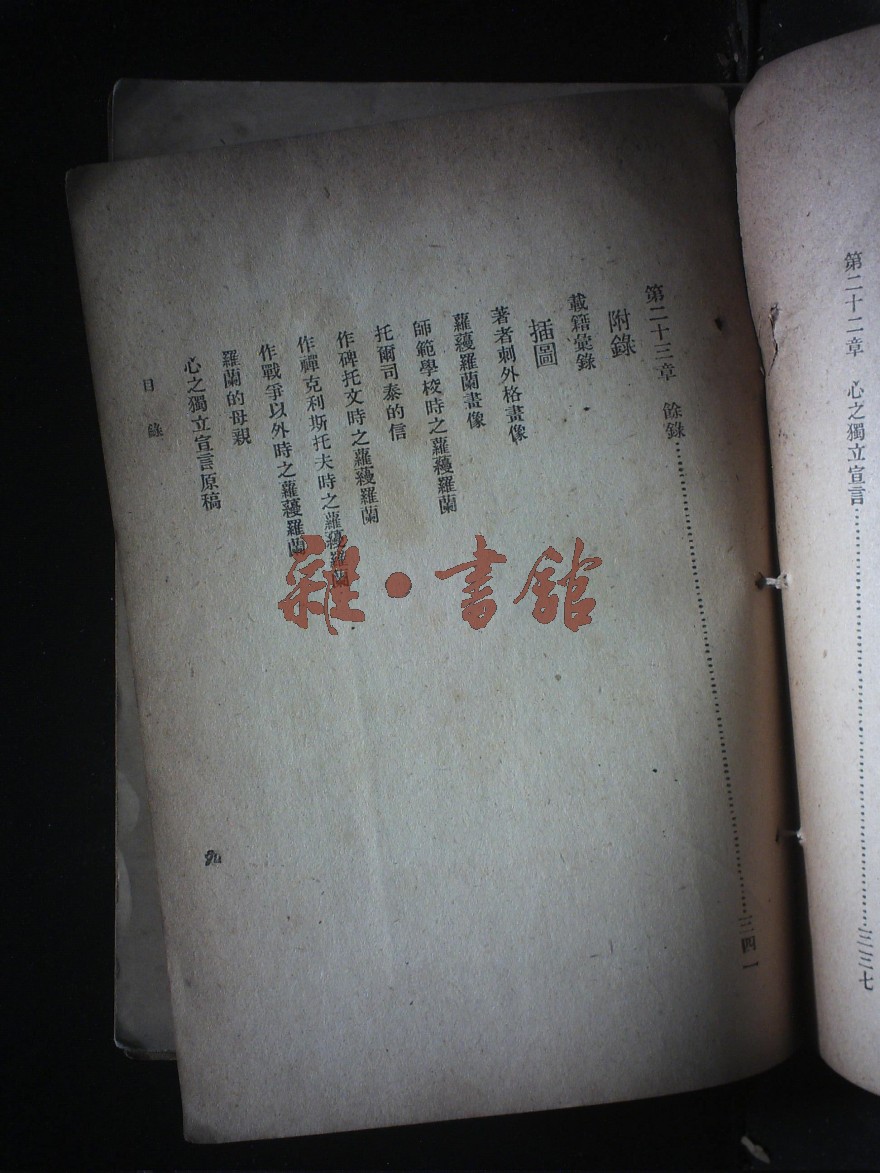 第二十二章 心之獨立宣言……三三七
第二十三章 餘錄……三四一
附錄
載籍彙錄
插圖
著者刺外格畫像
蘿蔓羅蘭畫像
師範學校時之蘿蔓羅蘭
托爾司泰的信
作碑托文時之蘿蔓羅蘭
作禪克利斯托夫時之蘿蔓羅蘭
作戰爭以外時之蘿蔓羅蘭
羅蘭的母親
心之獨立宣言原稿
目錄
九
雜·書館